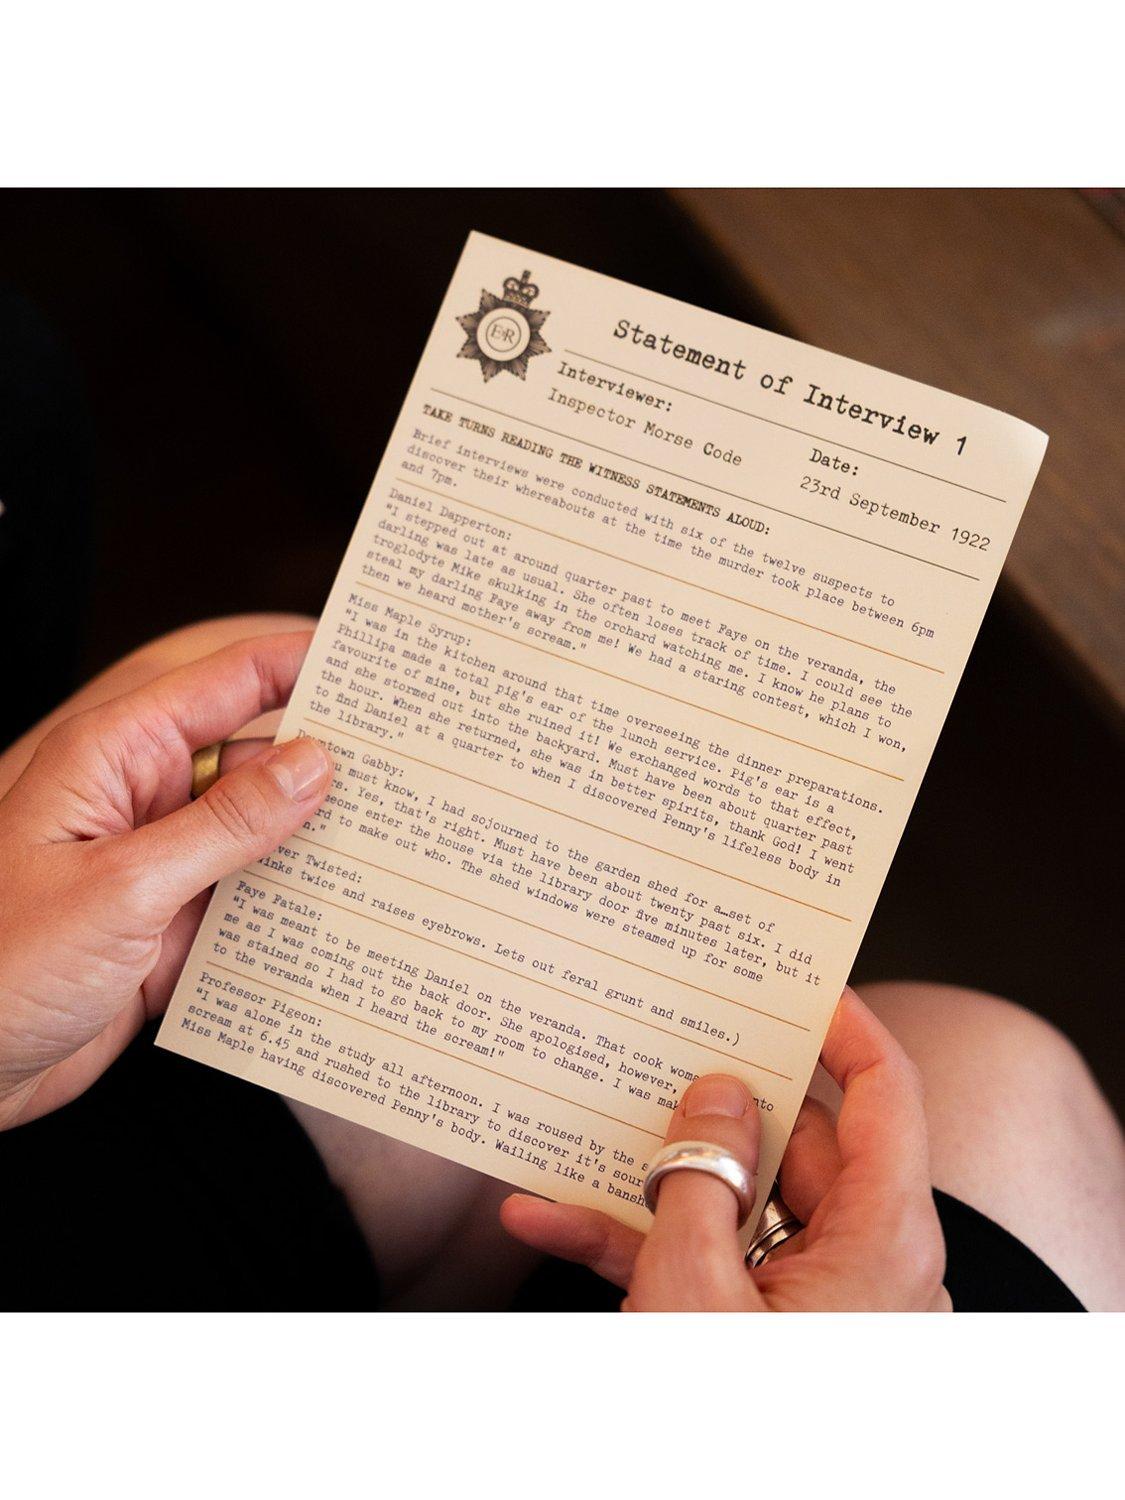 E R
Statement of Interview 1
Interviewer:
Inspector Morse Code
Date:
23rd September 1922
TAKE TURNS READING THE WITNESS STATEMENTS ALOUD:
Brief interviews were conducted with six of the twelve suspects to
discover their whereabouts at the time the murder took place between 6pm
and 7pm.
Daniel Dapperton:
"I stepped out at around quarter past to meet Faye on the veranda, the
darling was late as usual. She often loses track of time. I could see the
troglodyte Mike skulking in the orchard watching me. I know he plans to
steal my darling Faye away from me! We had a staring contest, which I won,
then we heard mother's scream."
Miss Maple Syrup:
"I was in the kitchen around that time overseeing the dinner preparations.
Phillipa made a total pig's ear of the lunch service. Pig's ear is a
favourite of mine, but she ruined it! We exchanged words to that effect,
and she stormed out into the backyard. Must have been about quarter past
the hour. When she returned, she was in better spirits, thank God! I went
to find Daniel at a quarter to when I discovered Penny's lifeless body in
the library."
Downtown Gabby:
you must know, I had sojourned to the garden shed for a…set of
Yes, that's right. Must have been about twenty past six. I did
enter the house via the library door five minutes later, but it
to make out who. The shed windows were steamed up for some
Twisted:
twice and raises eyebrows. Lets out feral grunt and smiles.)
Faye Fatale:
"I was meant to be meeting Daniel on the veranda. That cook
me as I was coming out the back door. She apologised, however,
was stained so I had to go back to my room to change. I was
to the veranda when I heard the scream!"
Professor Pigeon:
"I was alone in the study all afternoon. I was roused by the
scream at 6.45 and rushed to the library to discover it's
Miss Maple having discovered Penny's body. Wailing like a